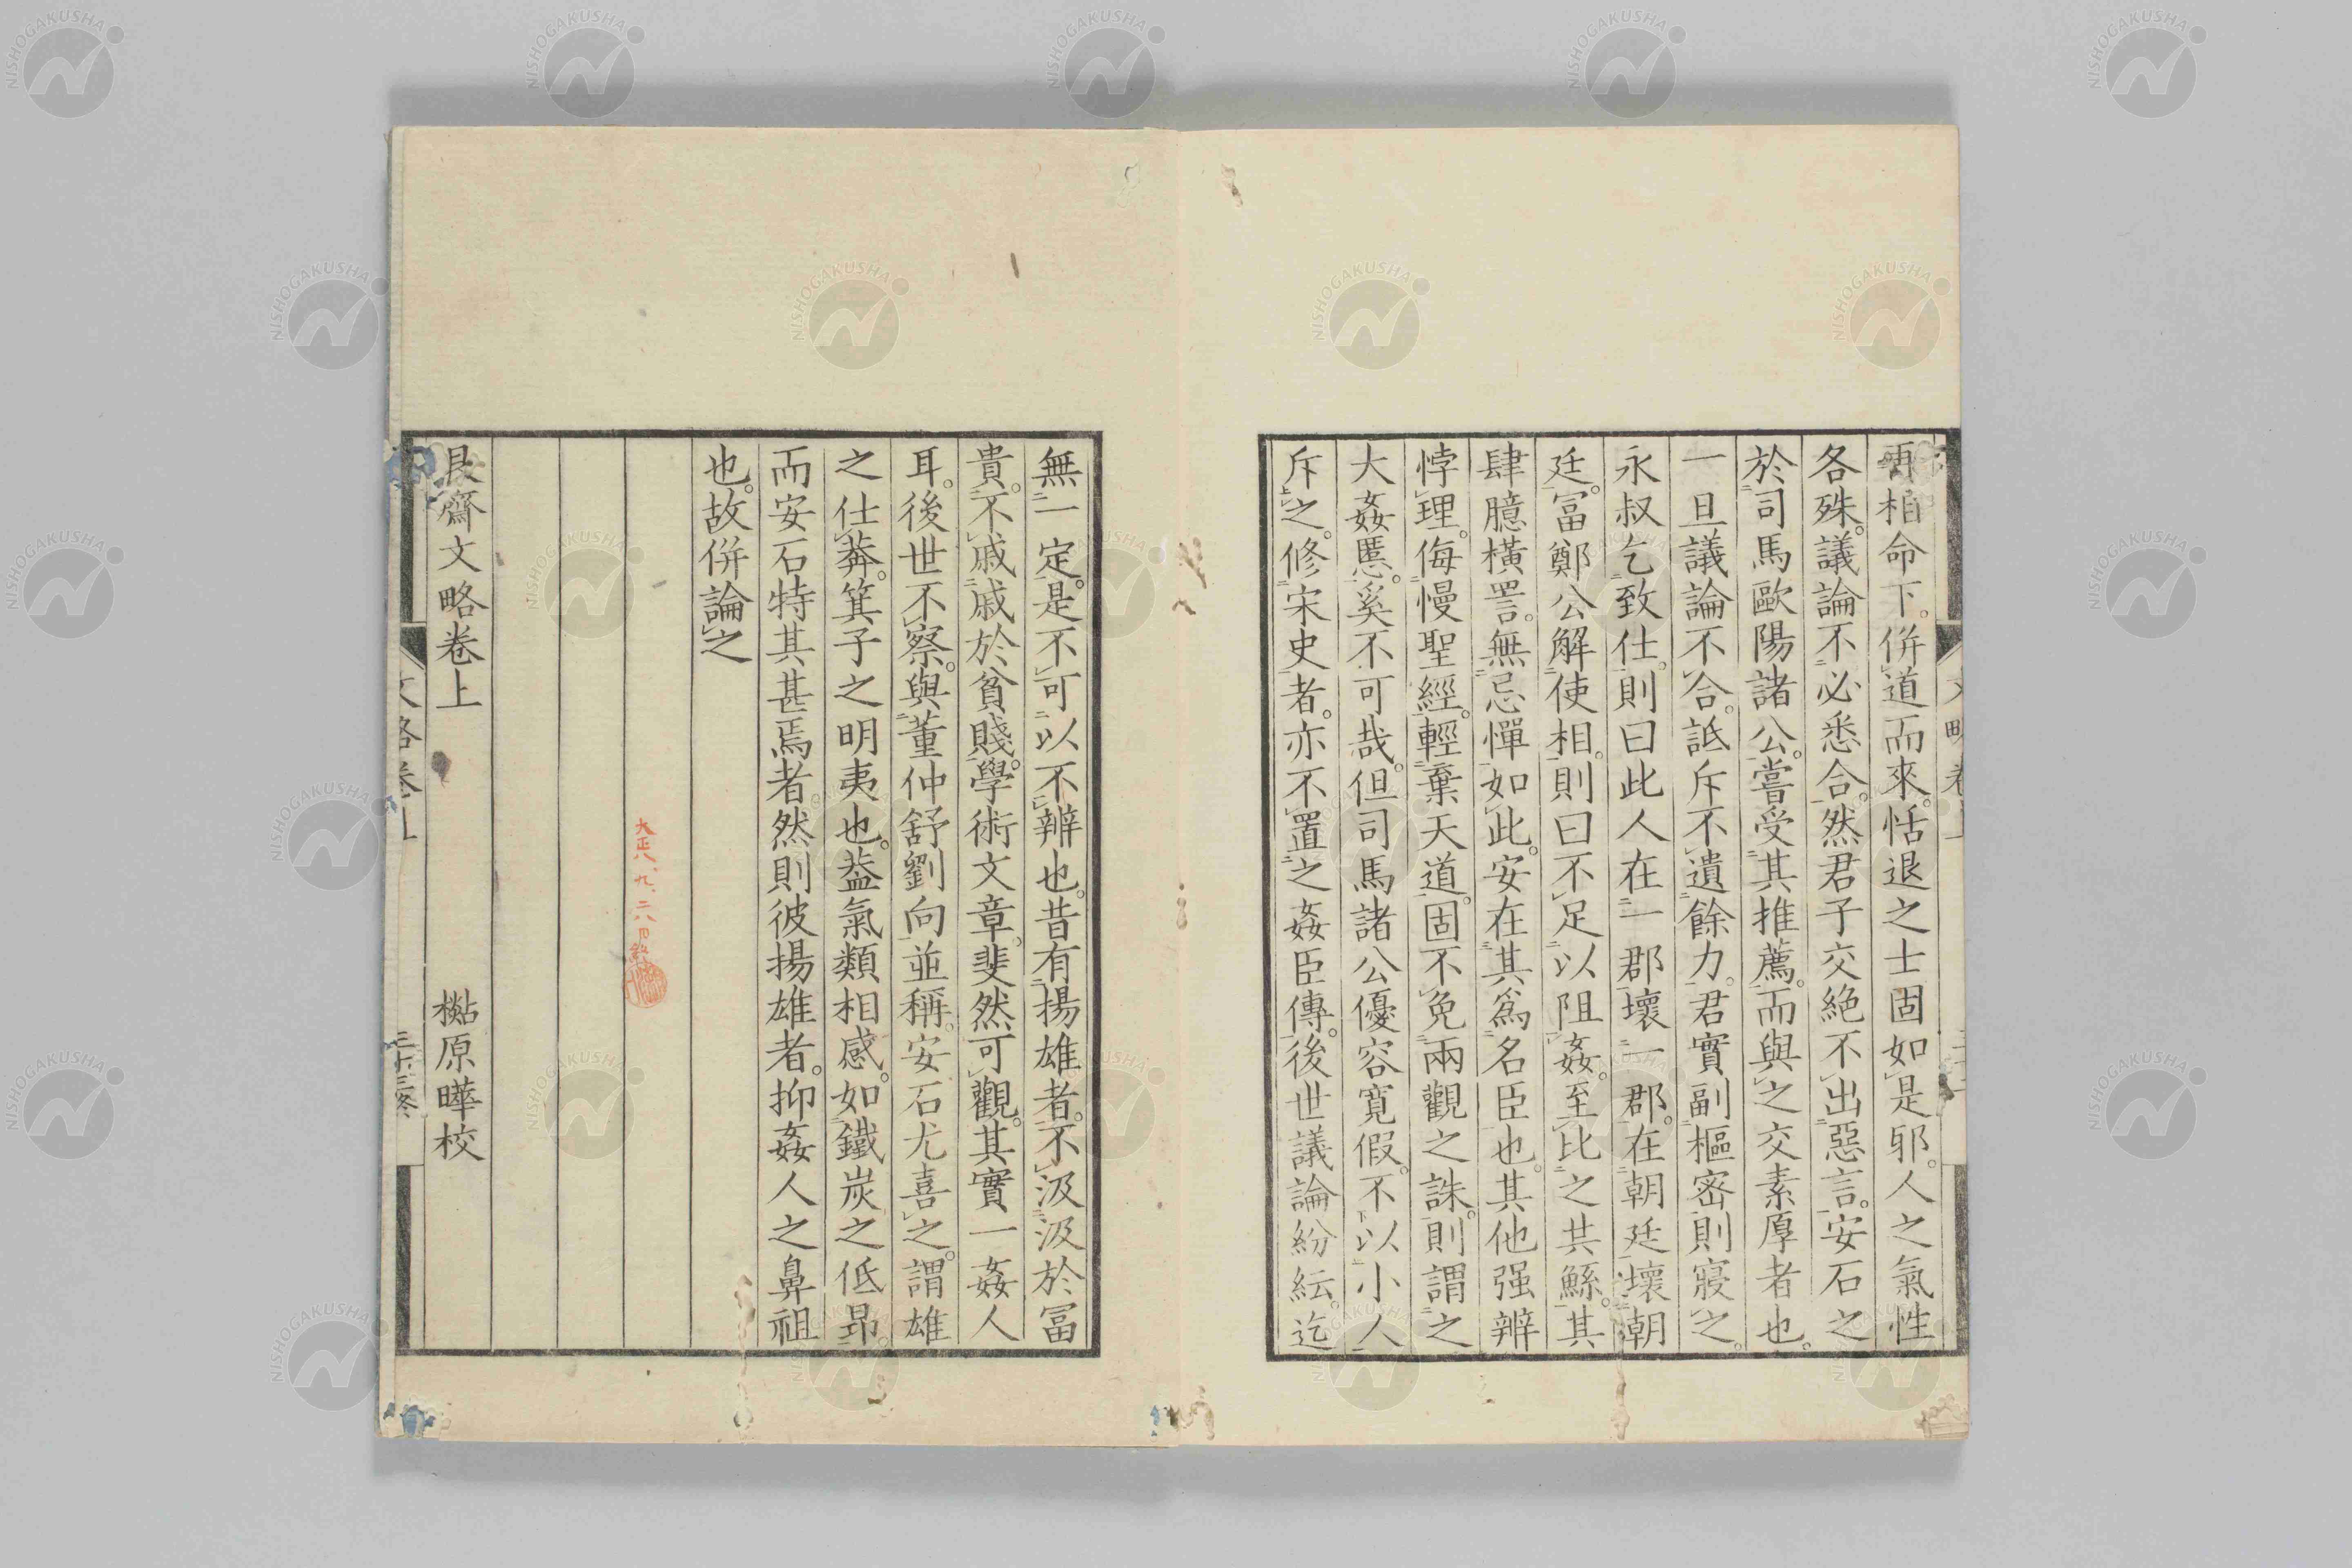 再相命下。併道而來。恬退之士固如是邪。人之氣性
各殊。議論不必悉合。然君子交絕不出惡言。安石之
於司馬歐陽諸公。嘗受其推薦。而與之交素厚者也。
一旦議論不合。詆斥不遺餘力。君實副樞密則寢之。
永叔乞致仕。則曰此人在一郡壞一郡。在朝廷壞朝
廷。富鄭公解使相。則曰不足以阻姦。至比之共鯀。其
肆臆橫詈。無忌憚如此。安在其爲名臣也。其他强辨
悖理。侮慢聖經。輕棄天道。固不免兩觀之誅。則謂之
大姦慝。奚不可哉。但司馬諸公優容寬假。不以小人
斥之。修宋史者。亦不置之姦臣傳。後世議論紛紜。迄
無一定。是不可以不辨也。昔有揚雄者。不汲汲於冨
貴。不戚戚於貧賤。學術文章。斐然可觀。其實一姦人
耳。後世不察。與董仲舒劉向並稱。安石尤喜之。謂雄
之仕莽。箕子之明夷也。蓋氣類相感。如鐵炭之低昻
而安石特其甚焉者。然則彼揚雄者。抑姦人之鼻祖
也。故併論之
大正八、九、二八日終
艮齋文略卷上
檆原曄校
文略卷上
三十三終